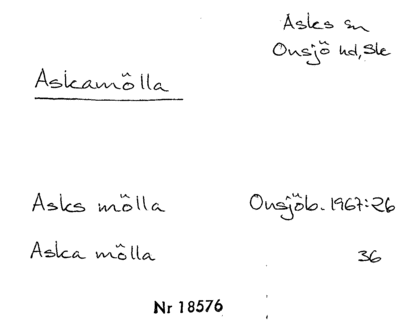 Asks sn
Onsjö hd, Ske
Askamölla
Asks mölla Onsjöb. 1967:26
Aska mölla 36
Nr 18576